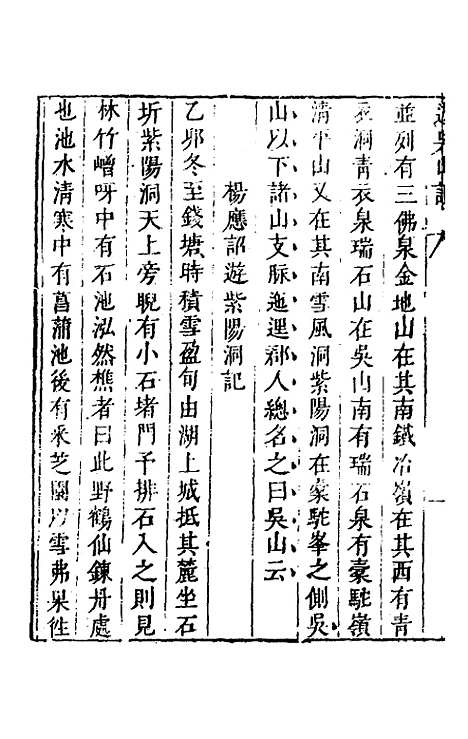 並列有三佛泉金地山在其南鐵冶嶺在其西有青
衣洞青衣泉瑞石山在吳山南有瑞石泉有橐駝嶺
清平山又在其南雪風洞紫陽洞在橐駝峯之側吳
山以下諸山支脉迤邐郡人總名之曰吳山云
楊應詔遊紫陽洞記
乙卯冬至錢塘時積雪盈旬由湖上城抵其麓坐石
圻紫陽洞天上旁睨有小石堵門予排石入之則見
林竹嶒呀中有石池泓然樵者曰此野鶴仙鍊丹處
也池水清寒中有菖蒲池後有采芝閣以雪弗果徃